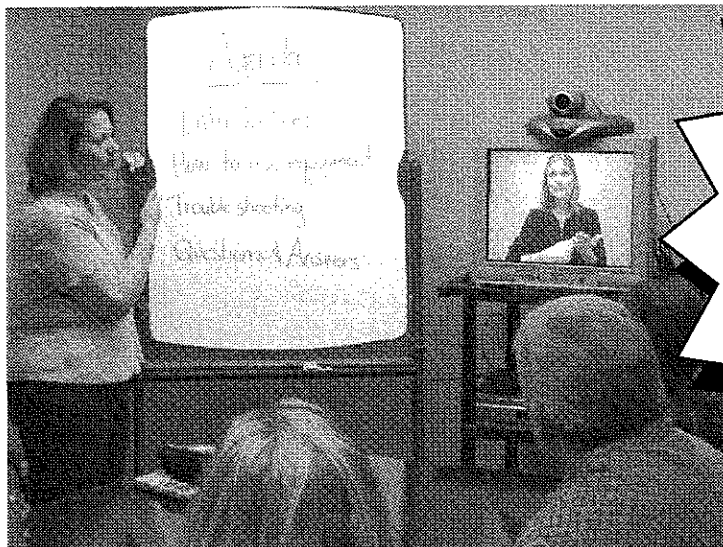 Agenda
How to use equipment
Trouble shooting
Questions & Answers